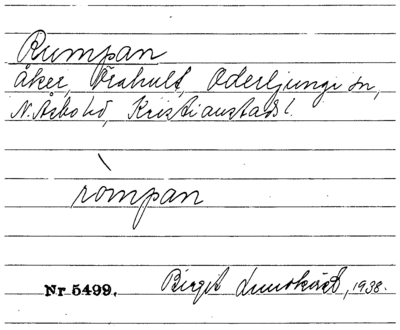 Rumpan
åker, Örahult, Oderljunga sn,
N. Åsbo hd, Kristianstads l.
ròmpan
Nr 5499. Birgit 1938.